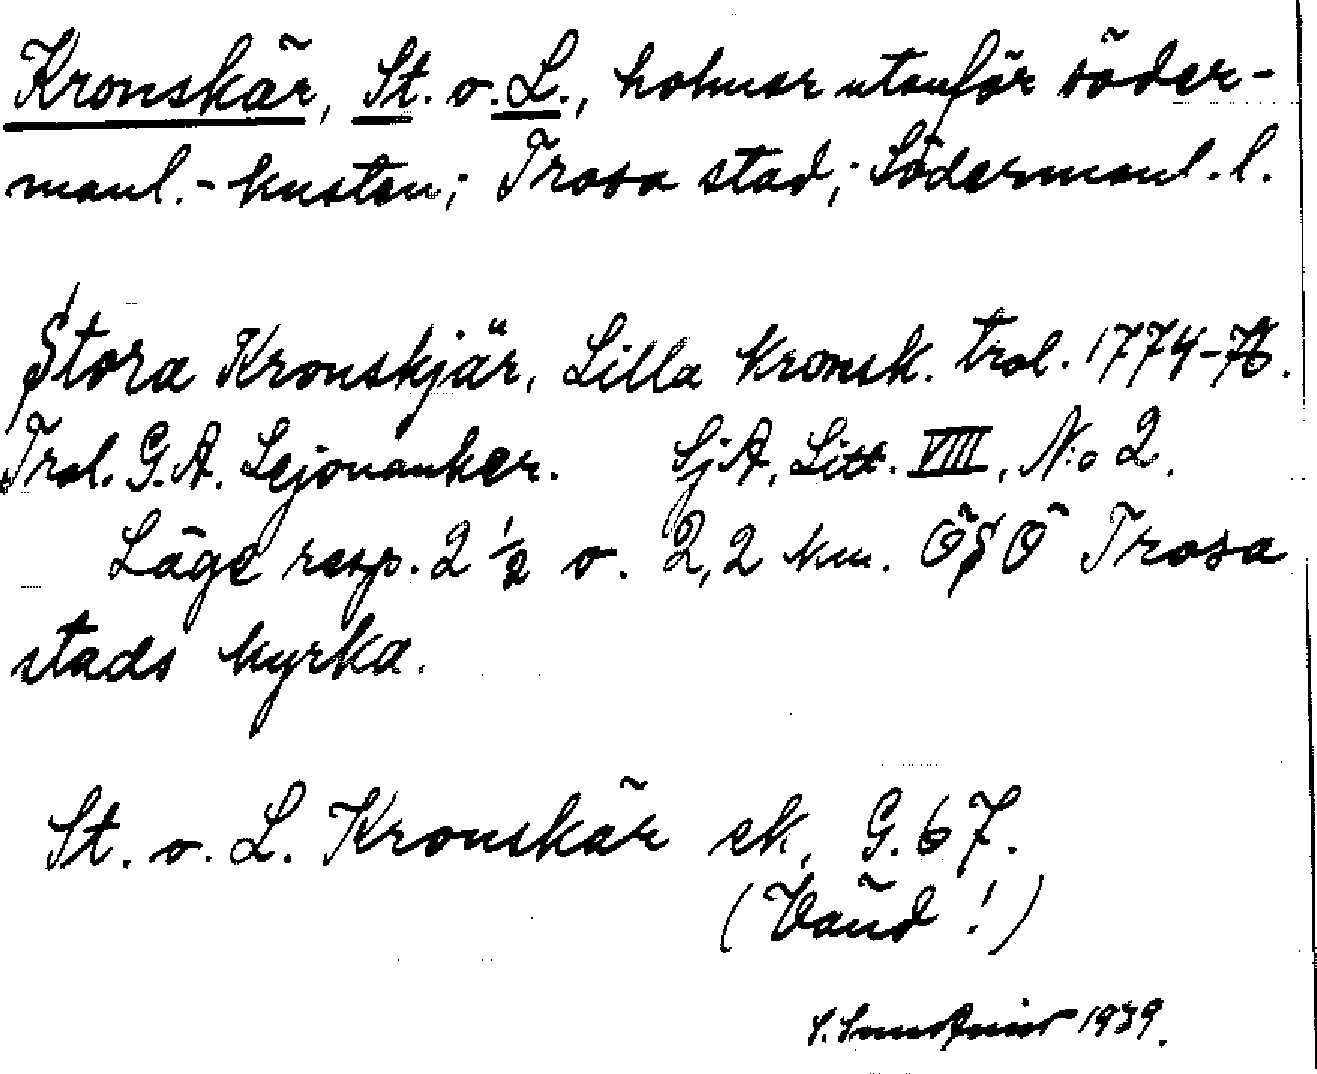 Kronskär, St. o. L., holmar utanför söder-
manl.-kusten; Trosa stad; Södermanl. l.
Stora Kronskjär, Lilla Kronsk. trol. 1774-76.
Trol. G.A. Lejonanker. SjA, Litt. VIII, N:o 2.
Läge resp. 2 ½ o. 2,2 km. ÖSÖ Trosa
stads kyrka.
St. o. L. Kronskär ek. G. 67.
(Vänd!)
1939.